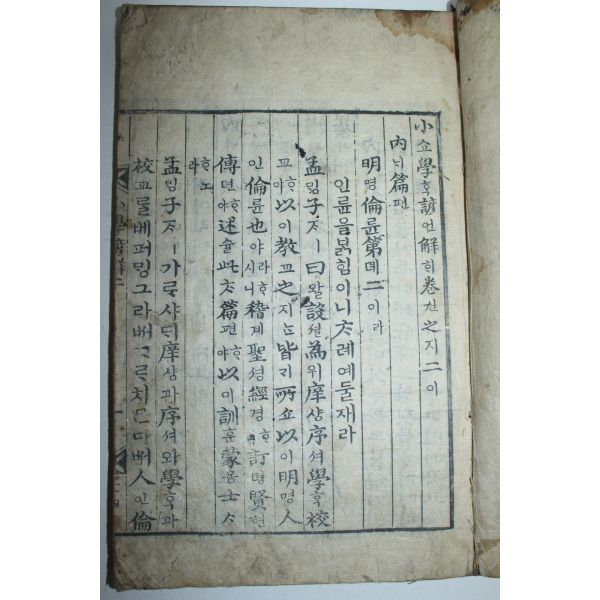 小쇼學ᄒᆞᆨ諺언解ᄒᆡ卷권之지二이
內ᄂᆡ篇편
明명倫륜第뎨二이라
인륜을ᄇᆞᆰ힘이니ᄎᆞ례예둘재라
孟ᄆᆡᆼ子ᄌᆞㅣ曰왈設셜為위庠샹序셔學ᄒᆞᆨ校
교ᄒᆞ야以이敎교之지ᄂᆞᆫ皆ᄀᆡ所쇼以이明명人
인倫륜也야ㅣ라ᄒᆞ시니稽계聖셩經경ᄒᆞ며訂뎡賢현
傳뎐ᄒᆞ야述슐此ᄎᆞ篇편ᄒᆞ야以이訓훈蒙몽士ᄉᆞ
ᄒᆞ노라
孟ᄆᆡᆼ子ᄌᆞㅣ가ᄅᆞ샤ᄃᆡ庠샹과序셔와學ᄒᆞᆨ과
校교ᄅᆞᆯ베퍼ᄆᆡᆼ그라ᄡᅥᄀᆞᄅᆞ치ᄂᆞᆫ다ᄡᅥ人인倫
小學諺解二